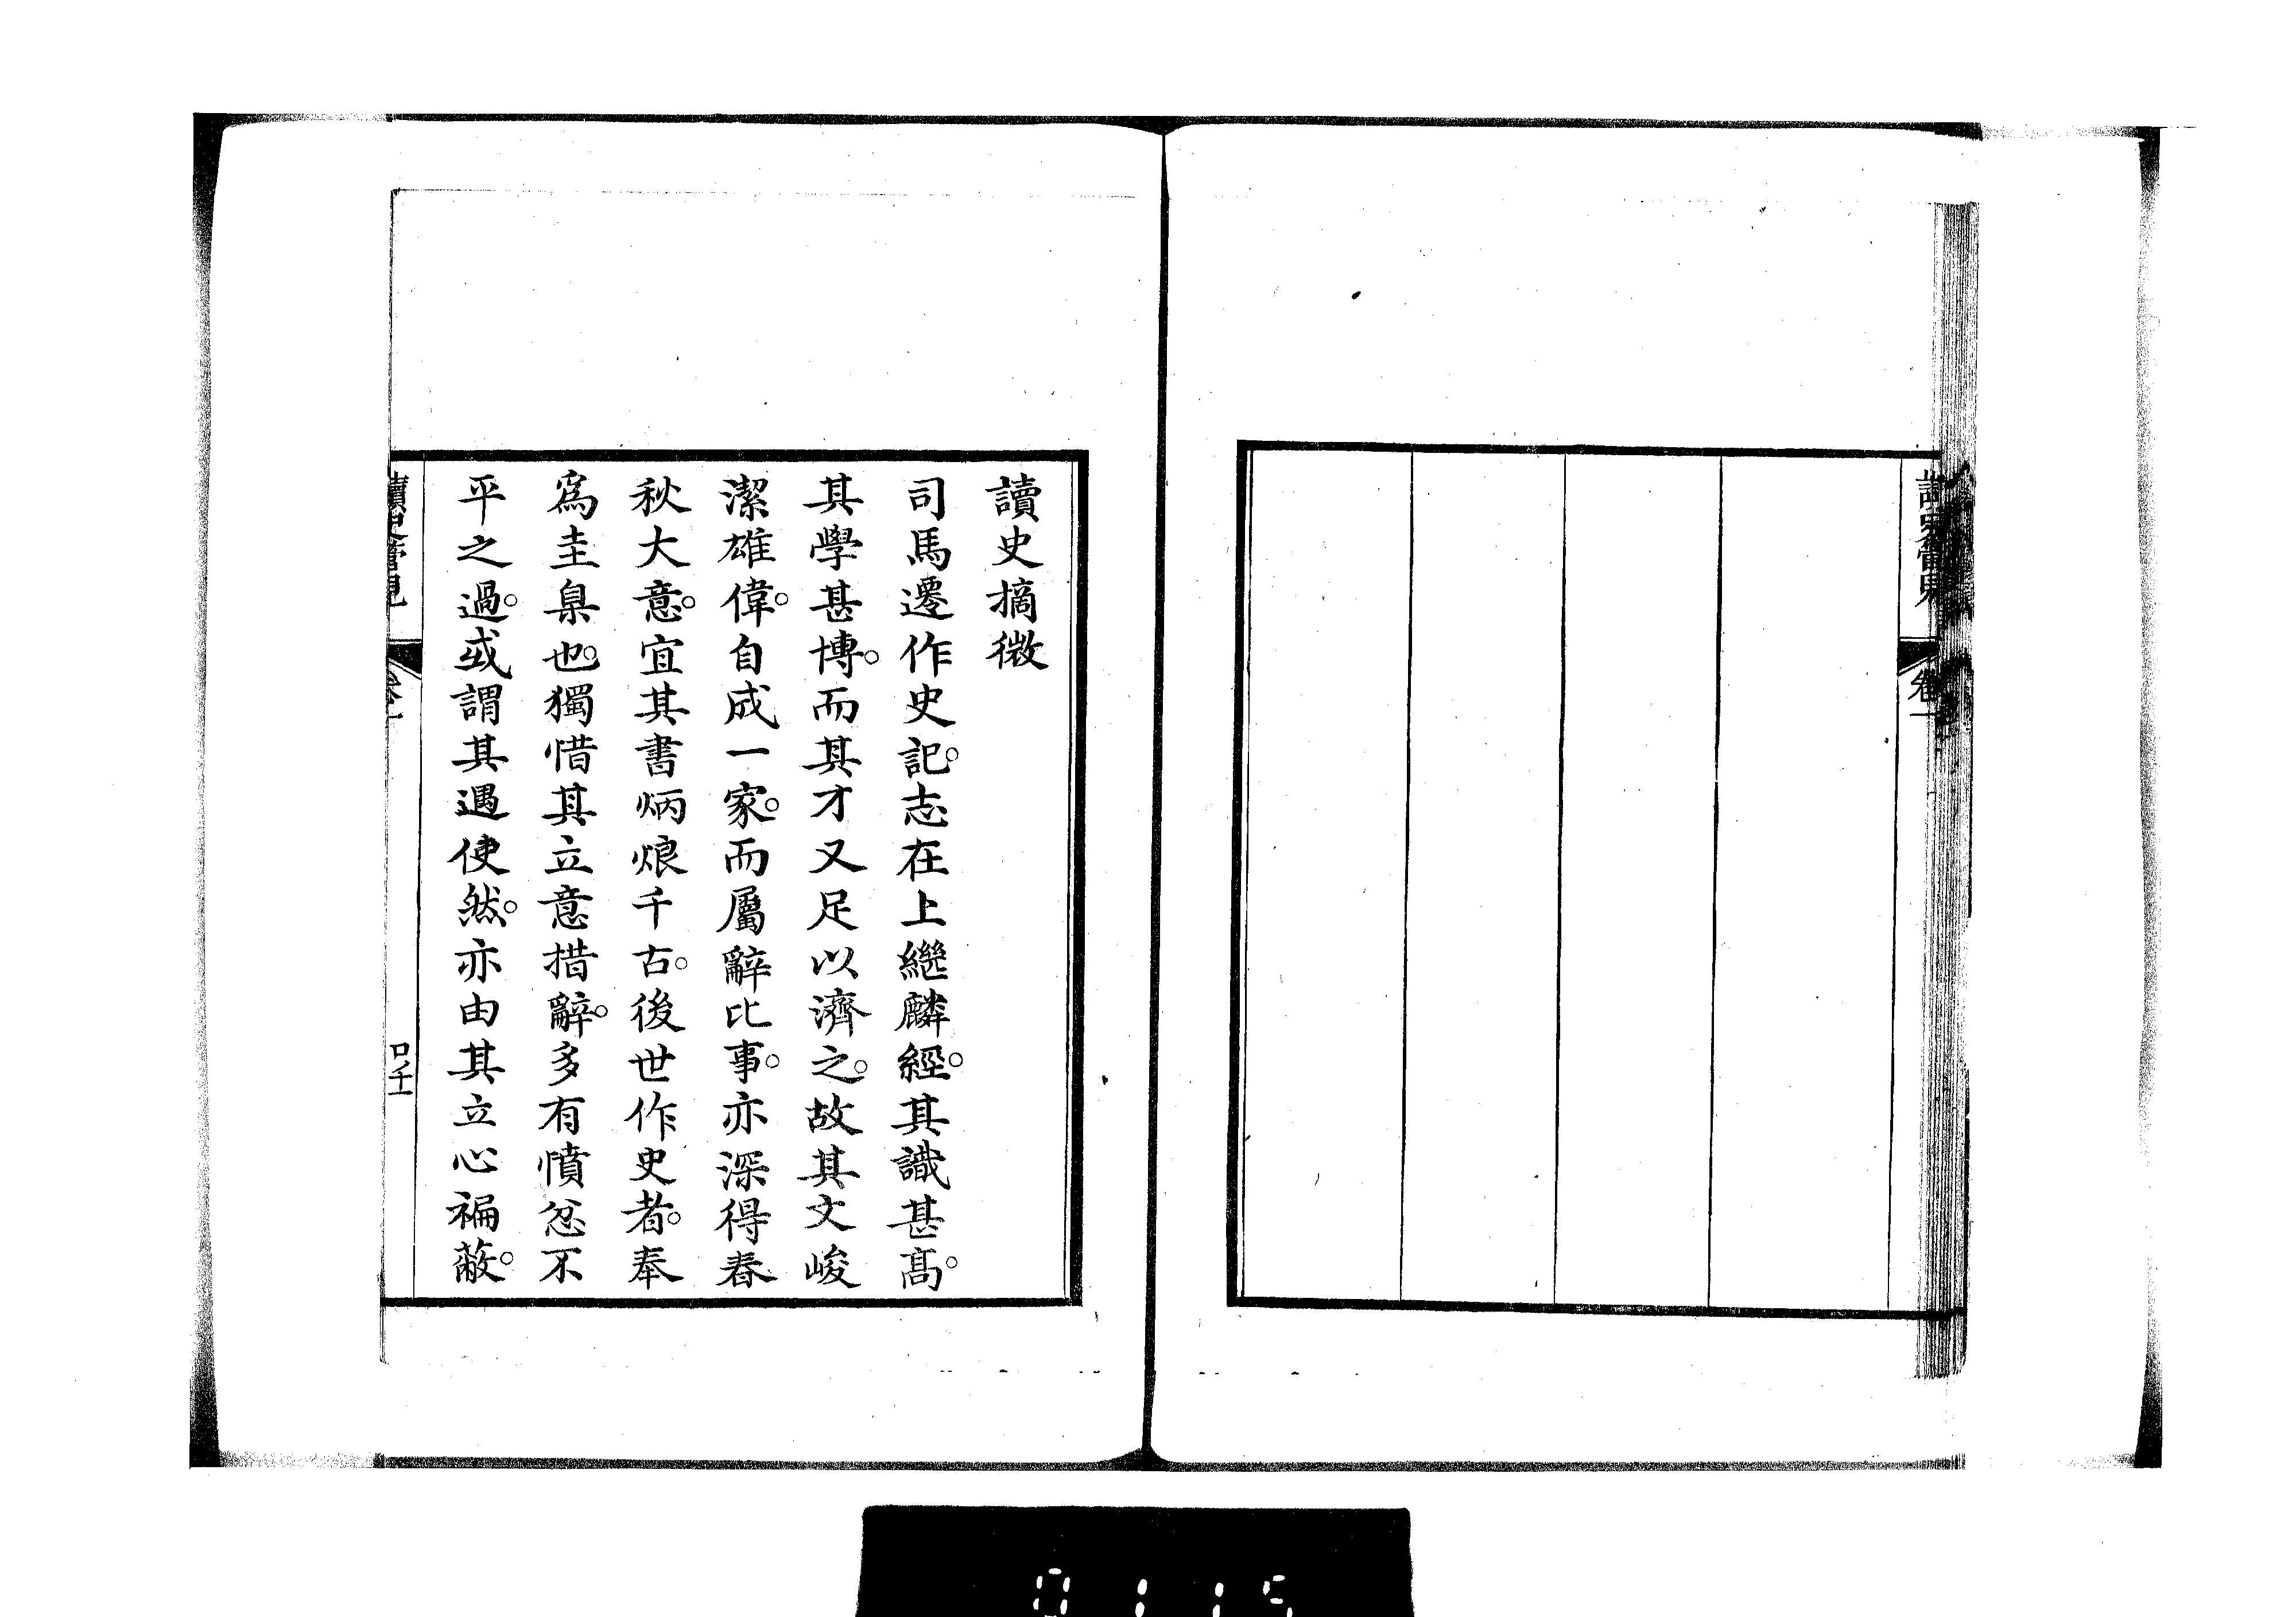 卷一
讀史摘微
司馬遷作史記。志在上繼麟經。其識甚高。
其學甚博。而其才又足以濟之。故其文峻
潔雄偉。自成一家。而屬辭比事。亦深得春
秋大意。宜其書炳烺千古。後世作史者。奉
爲圭臬也。獨惜其立意措辭。多有憤忿不
平之過。或謂其遇使然。亦由其立心褊蔽。
讀史管見